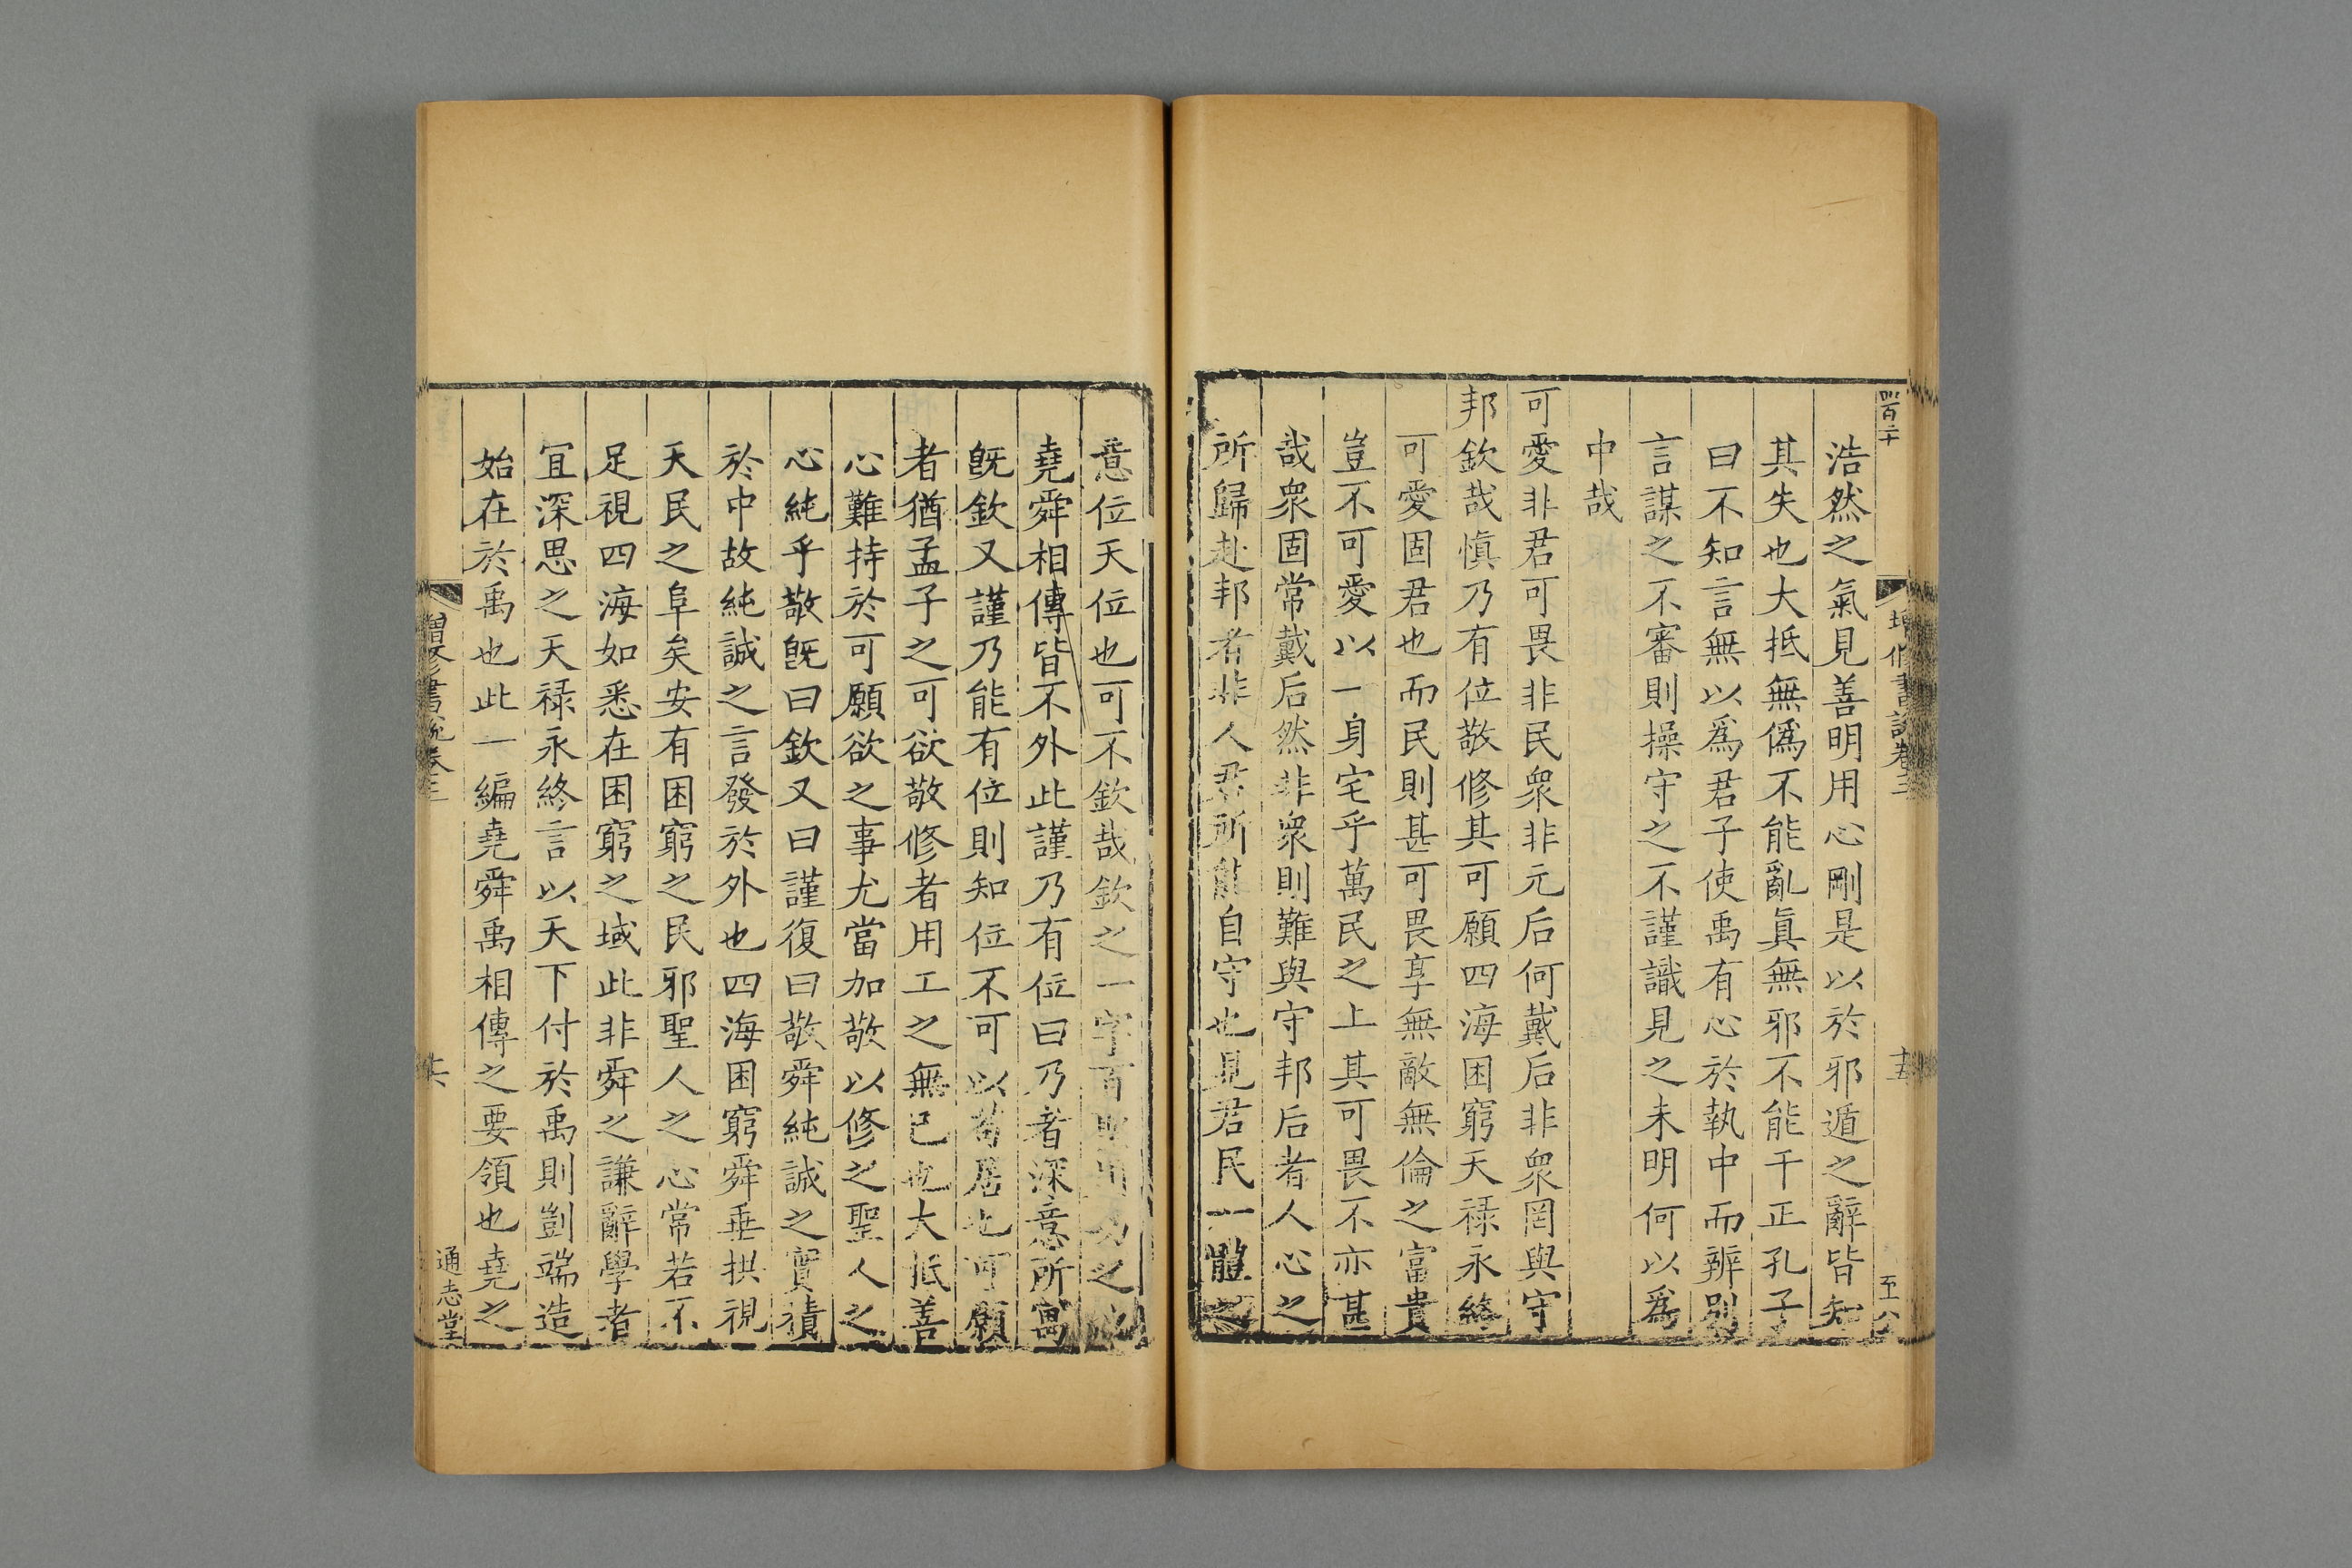 浩然之氣見善明用心剛是以於邪遁之辭皆知
其失也大抵無僞不能亂眞無邪不能干正孔子
曰不知言無以爲君子使禹有心於執中而辨別
言謀之不審則操守之不謹識見之未明何以爲
中哉
可愛非君可畏非民衆非元后何戴后非衆罔與守
邦欽哉愼乃有位敬修其可願四海困窮天祿永終
可愛固君也而民則甚可畏享無敵無倫之富貴
豈不可愛以一身宅乎萬民之上其可畏不亦甚
哉衆固常戴后然非衆則難與守邦后者人心之
所歸赴邦者非人君所能自守也見君民一體之
意位天位也可不欽哉欽之一字
堯舜相傳皆不外此謹乃有位曰乃者深意所寓
旣欽又謹乃能有位則知位不可以苟居也可願
者猶孟子之可欲敬修者用工之無已也大抵善
心難持於可願欲之事尤當加敬以修之聖人之
心純乎敬旣曰欽又曰謹復曰敬舜純誠之實積
於中故純誠之言發於外也四海困窮舜垂拱視
天民之阜矣安有困窮之民邪聖人之心常若不
足視四海如悉在困窮之域此非舜之謙辭學者
宜深思之天祿永終言以天下付於禹則剴端造
始在於禹也此一編堯舜禹相傳之要領也堯之
增修書說卷三
十五
至公
增修書說卷三
十六
通志堂